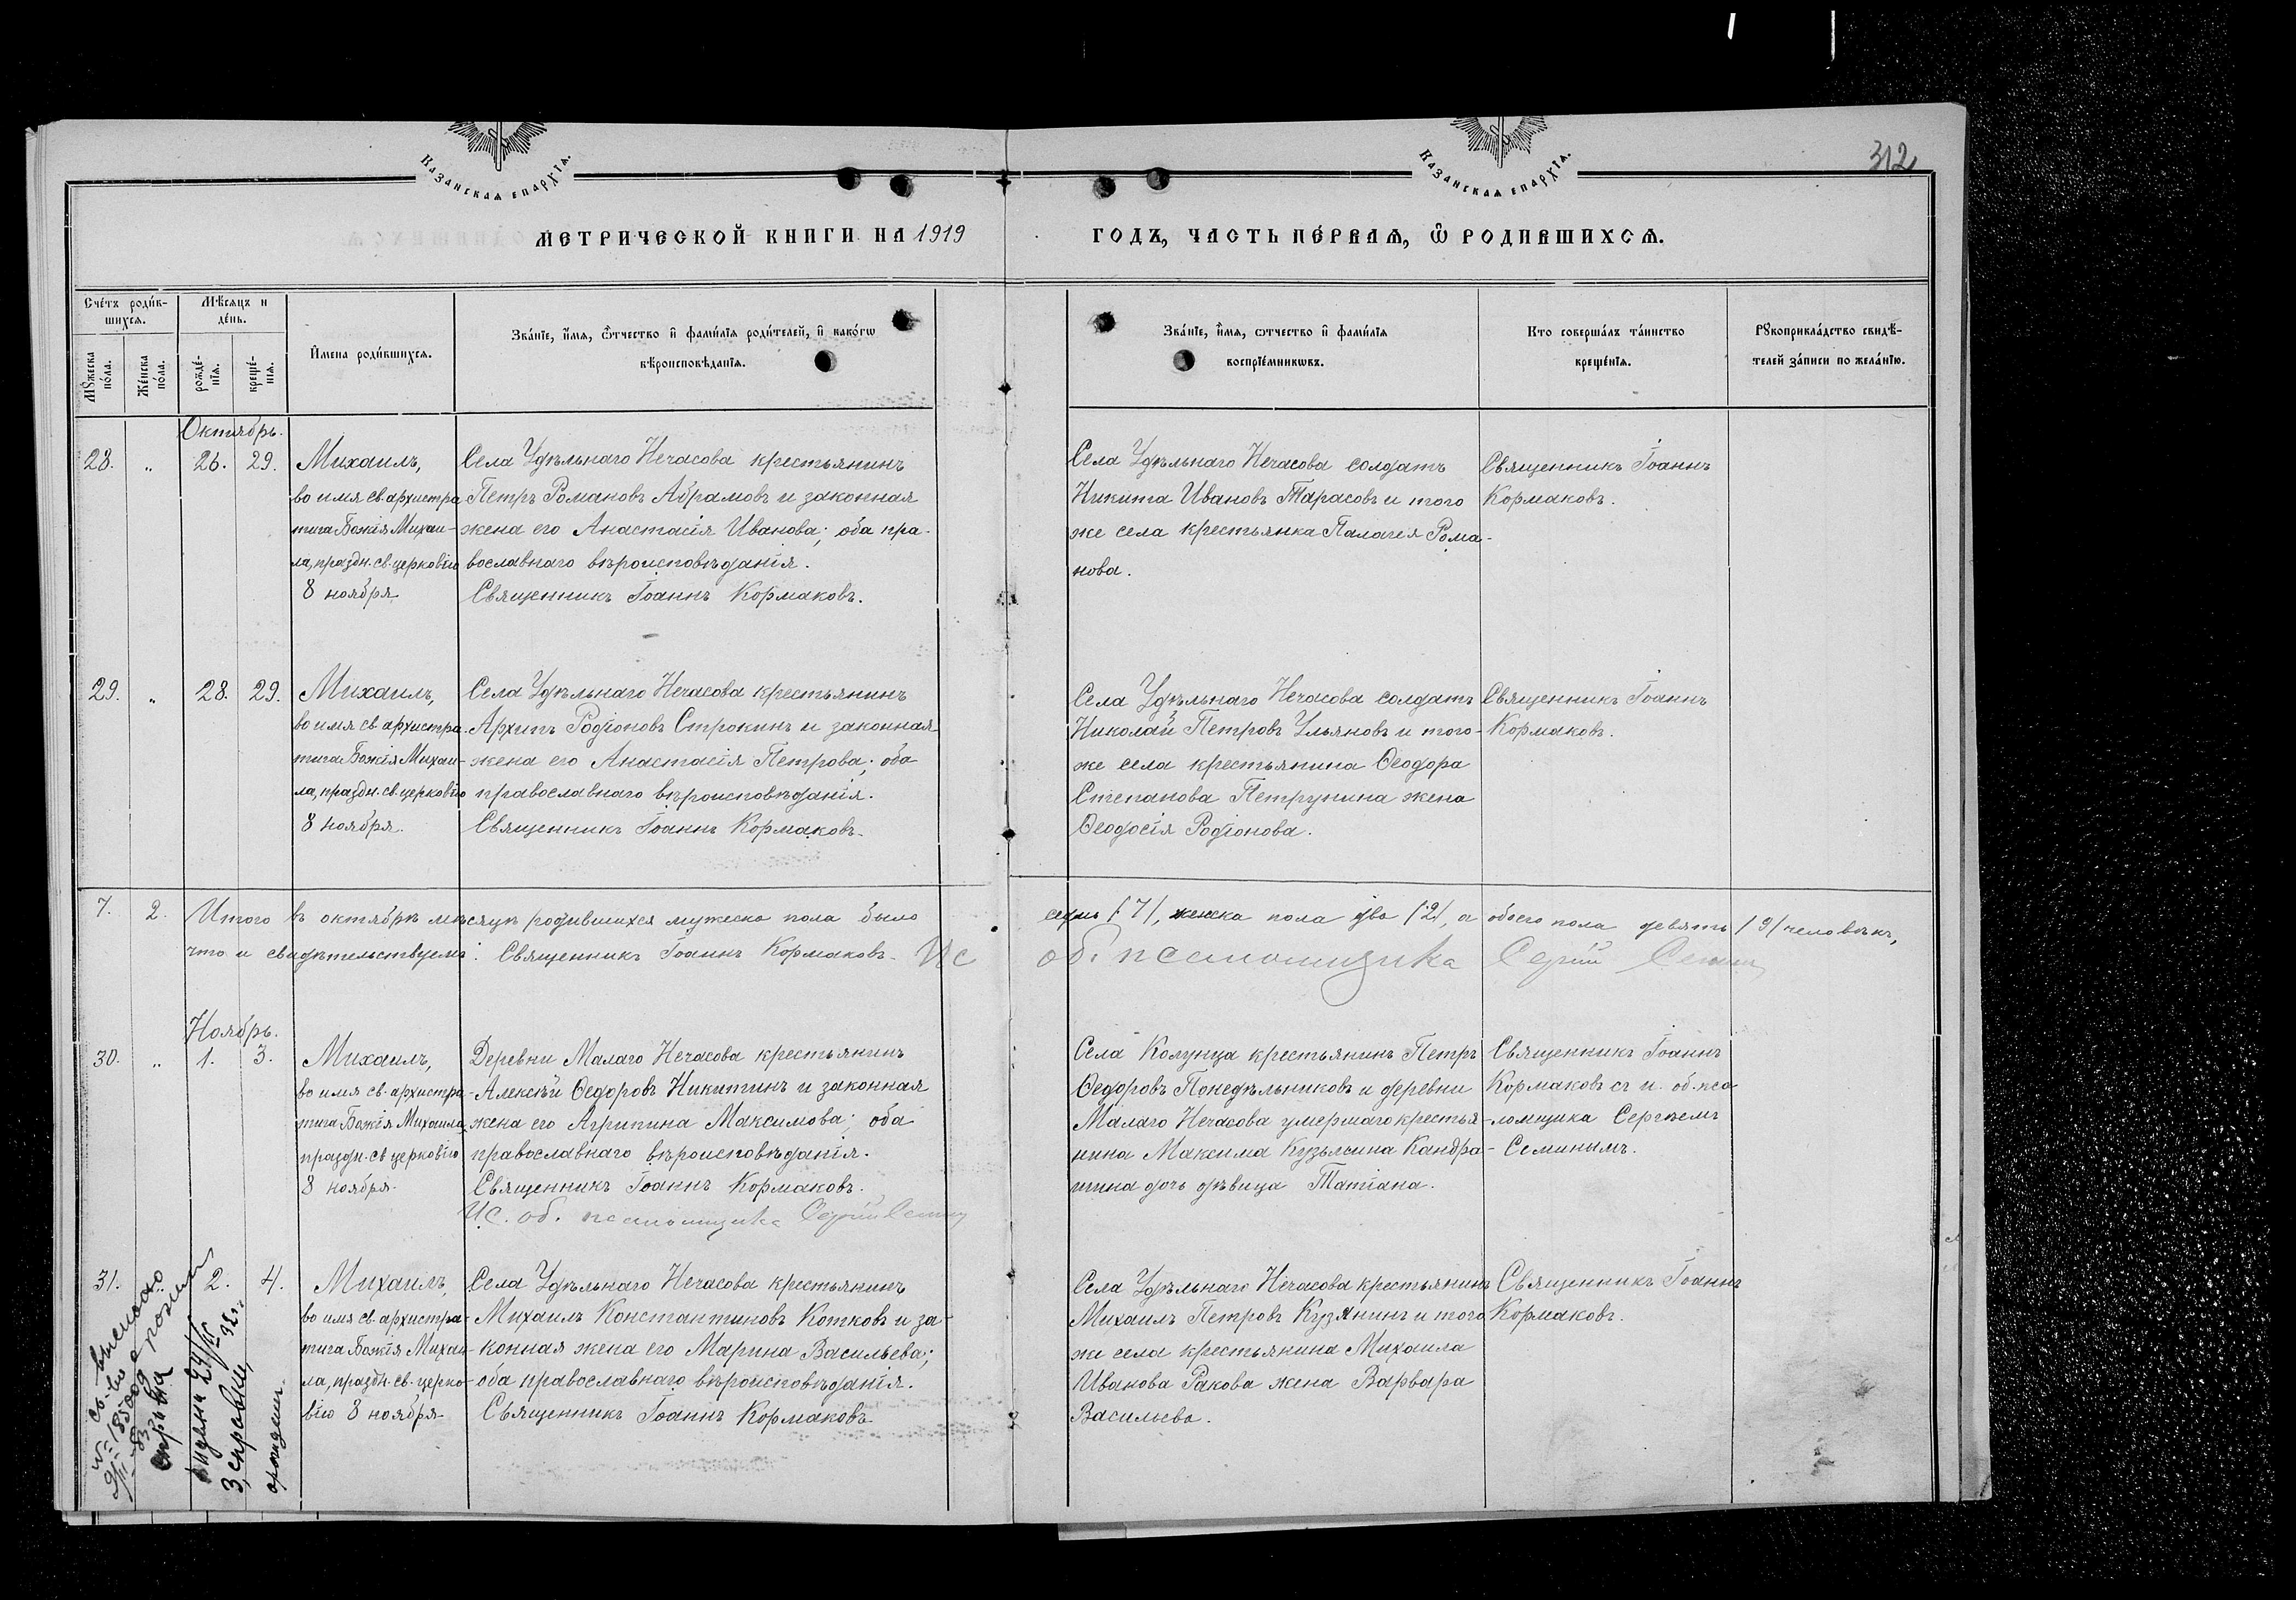 КАЗАНСКАѦ ЕПАРХІѦ.
КАЗАНСКАѦ ЕПАРХІѦ.
312
МЕТРИЧЕСКОЙ КНИГИ НА 1919
ГОДЪ, ЧАСТЬ ПЕ́РВАѦ, Ѽ РОДИВШИХСѦ.
Сче́тъ роди́в-
шихсѧ.
Мꙋ́жеска по́ла.
Же́нска по́ла.
Мѣ́сѧцъ и
де́нь.
рожде́-
нїѧ.
креще́-
нїѧ.
И҆мена роди́вшихсѧ.
Зва́нїе, и҆́мѧ, ѻ҆́тчество и҆ фами́лїѧ роди́телей, и҆ како́гѡ
вѣ́роисповѣ́данїѧ.
Зва́нїе, и҆́мѧ, ѻтчество и҆ фами́лїѧ
воспрїе́мникѡвъ.
Кто соверша́лъ та́инство
креще́нїѧ.
Рꙋкоприкла́дство свидѣ́-
телей за́писи по жела́нїю.
Октябрь.
28. „ 26. 29.
Михаилъ,
во имя св. архистра
тига Божія Михаи-
ла, праздн. св. церковію
8 ноября
Села Удѣльнаго Нечасова крестьянинъ
Петръ Романовъ Абрамовъ и законная
жена его Анастасія Иванова; оба пра-
вославнаго вѣроисповѣданія.
Священникъ Іоаннъ Кормаковъ.
Села Удѣльнаго Нечасова солдатъ
Никита Ивановъ Тарасовъ и того
же села крестьянка Палагея Рома-
нова.
Священникъ Іоаннъ
Кормаковъ.
29. „ 28. 29.
Михаилъ,
во имя св. архистра-
тига Божія Михаи-
ла, праздн. св. церковію
8 ноября.
Села Удѣльнаго Нечасова крестьянинъ
Архипъ Родіоновъ Строкинъ и законная
жена его Анастасія Петрова; оба
православнаго вѣроисповѣданія.
Священникъ Іоаннъ Кормаковъ.
Села Удѣльнаго Нечасова солдатъ
Николай Петровъ Ульяновъ и того-
же села крестьянина Ѳеодора
Степанова Петрунина жена
Ѳеодосія Родіонова.
Священникъ Іоаннъ
Кормаковъ.
7. 2. Итого въ октябрѣ мѣсяцѣ родившихся мужеска пола было седмь /7/, женска пола два /2/, а обоего пола девять /9/ человѣкъ,
что и свидѣтельствуемъ: Священникъ Іоаннъ Кормаковъ. Ис об. псаломщика Сергій Семин
Ноябрь.
30. „ 1. 3.
Михаилъ,
во имя св. архистра-
тига Божія Михаила,
праздн. св церковію
8 ноября.
Деревни Малаго Нечасова крестьянинъ
Алексѣй Ѳедоровъ Никитинъ и законная
жена его Агрипина Максимова; оба
православнаго вѣроисповѣданія.
Священникъ Іоаннъ Кормаковъ.
И.С. об. псаломщика Сергій Семин
Села Колунца крестьянинъ Петръ
Ѳедоровъ Понедѣльниковъ и деревни
Малаго Нечасова умершаго крестья-
нина Максима Кузьмина Кандра-
шина дочь дѣвица Татіана.
Священникъ Іоаннъ
Кормаковъ съ и. об. пса
ломщика Сергѣемъ
Семинымъ.
31. „ 2. 4.
Михаилъ,
во имя св. архистра-
тига Божія Михаи-
ла, праздн. св. церко-
вію 8 ноября
Села Удѣльнаго Нечасова крестьянинъ
Михаилъ Константиновъ Котковъ и за-
конная жена его Марина Васильева;
оба православнаго вѣроисповѣданія.
Священникъ Іоаннъ Кормаковъ
Села Удѣльнаго Нечасова крестьянинъ
Михаилъ Петровъ Кузянинъ и того
же села крестьянина Михаила
Иванова Ракова жена Варвара
Васильева.
Священникъ Іоаннъ
Кормаковъ.
справка